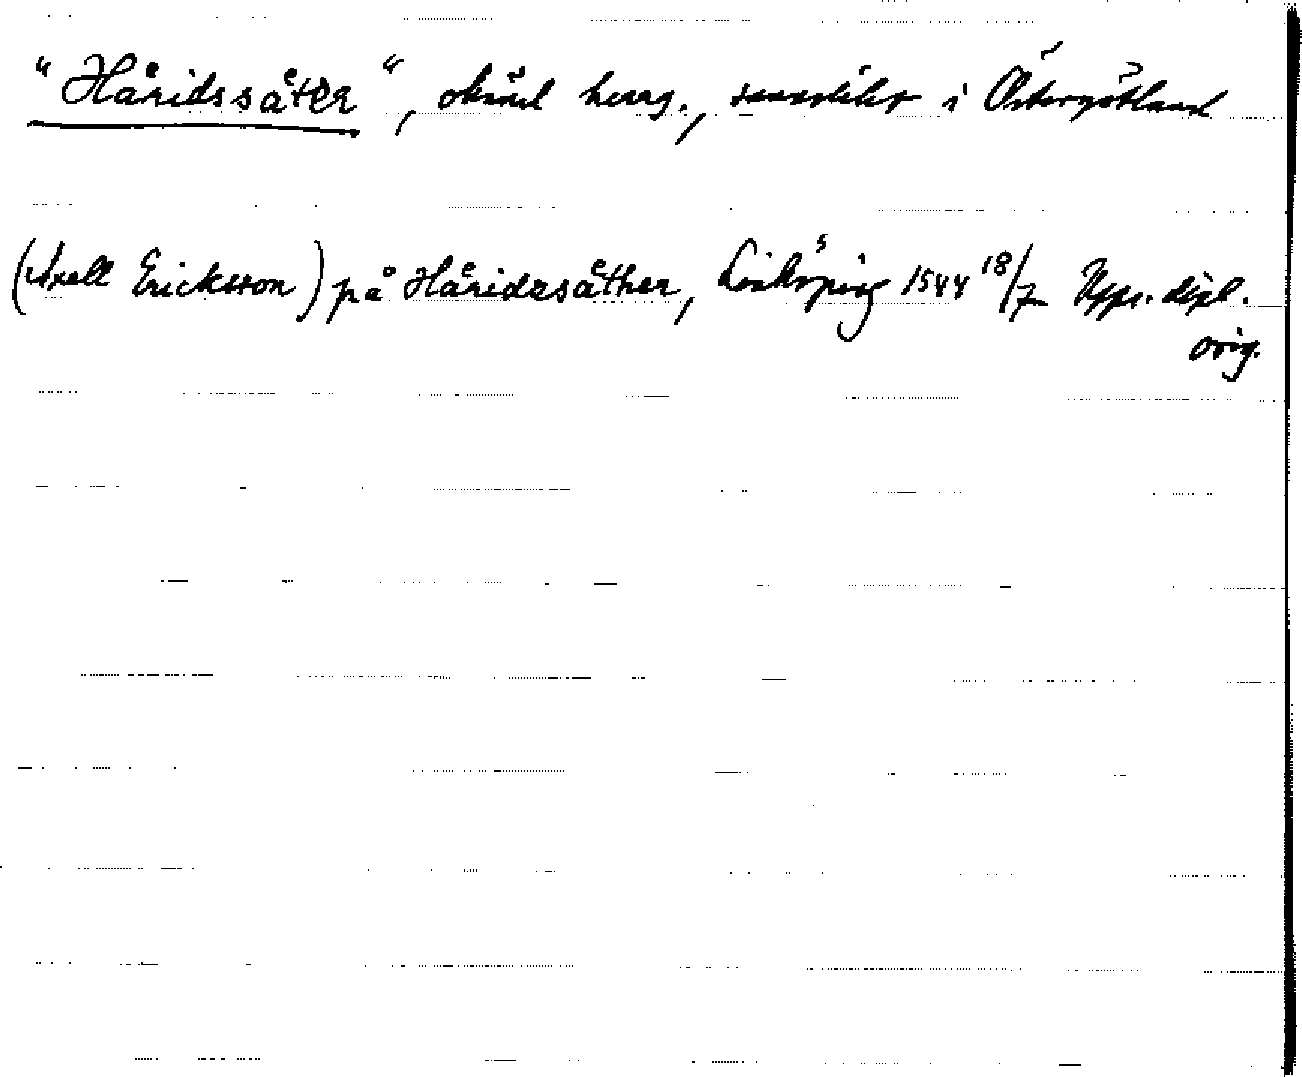 "Håridssåter", okänd herrg., sannolikt i Östergötland
(Axell Ericksson) på Håridzsåther, Linköping 1544 18/7 Upps. dipl.
orig.